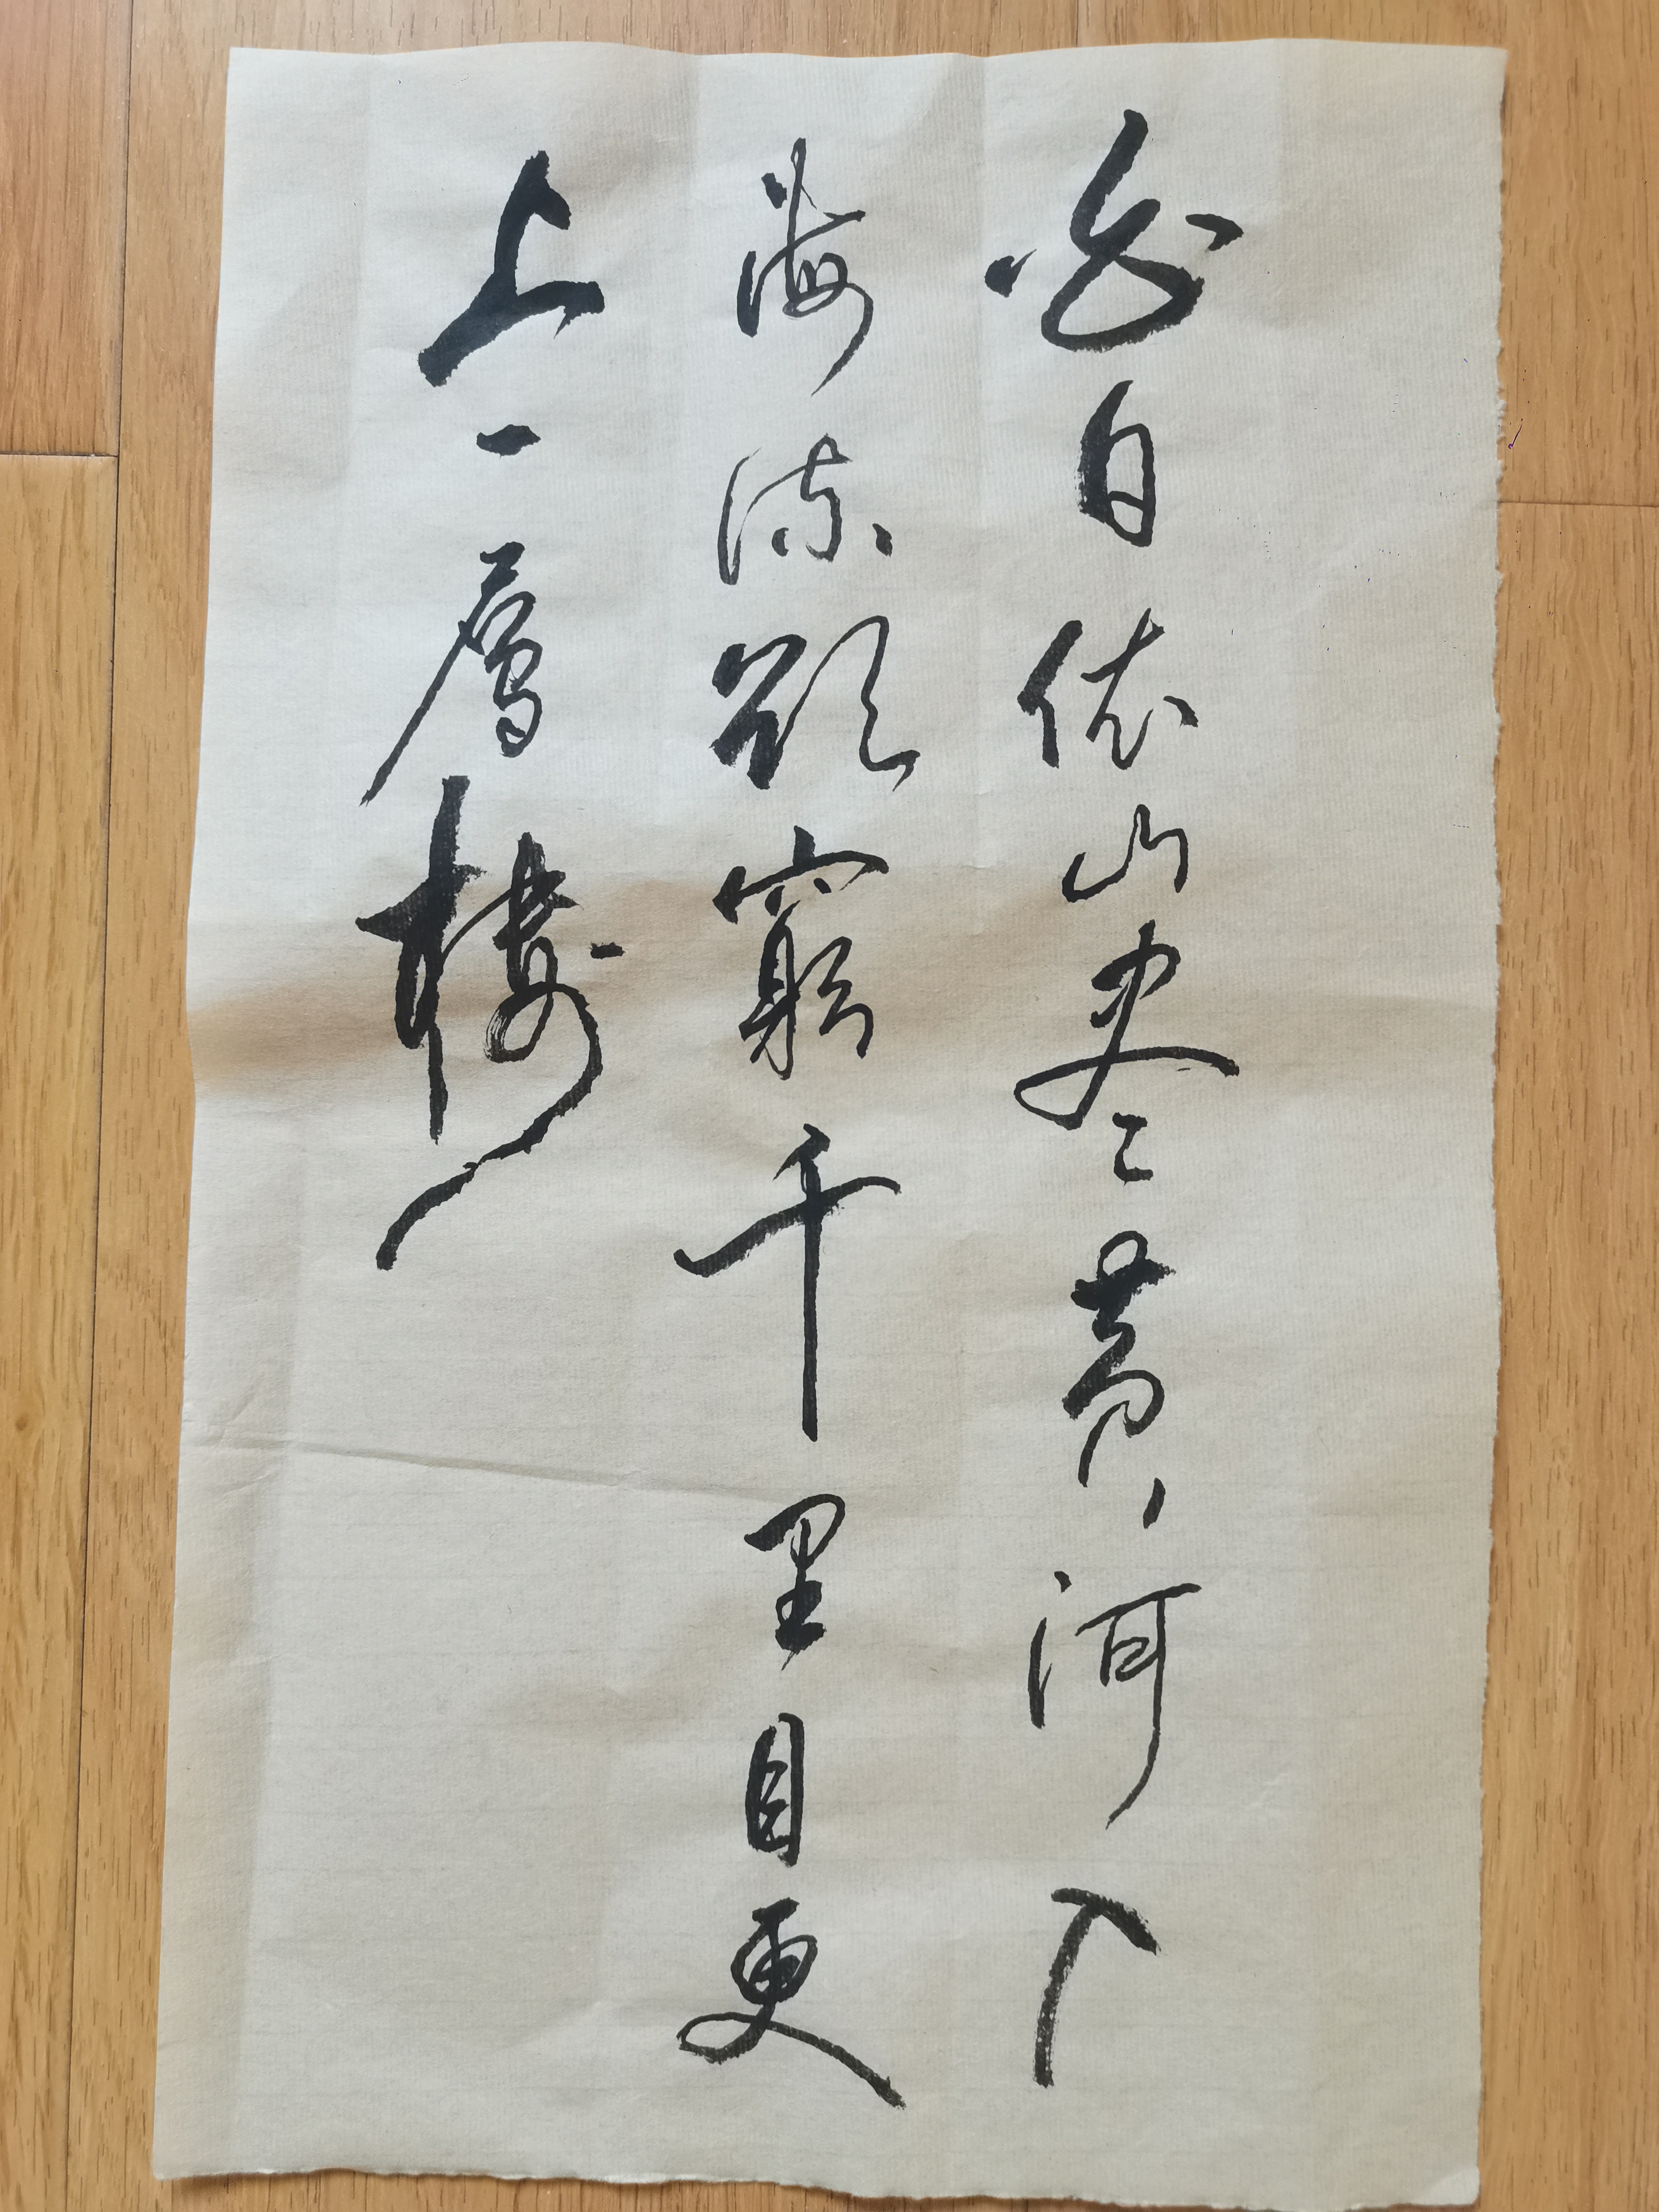 白日依山尽黄河入
海流欲窮千里目更
上一層樓